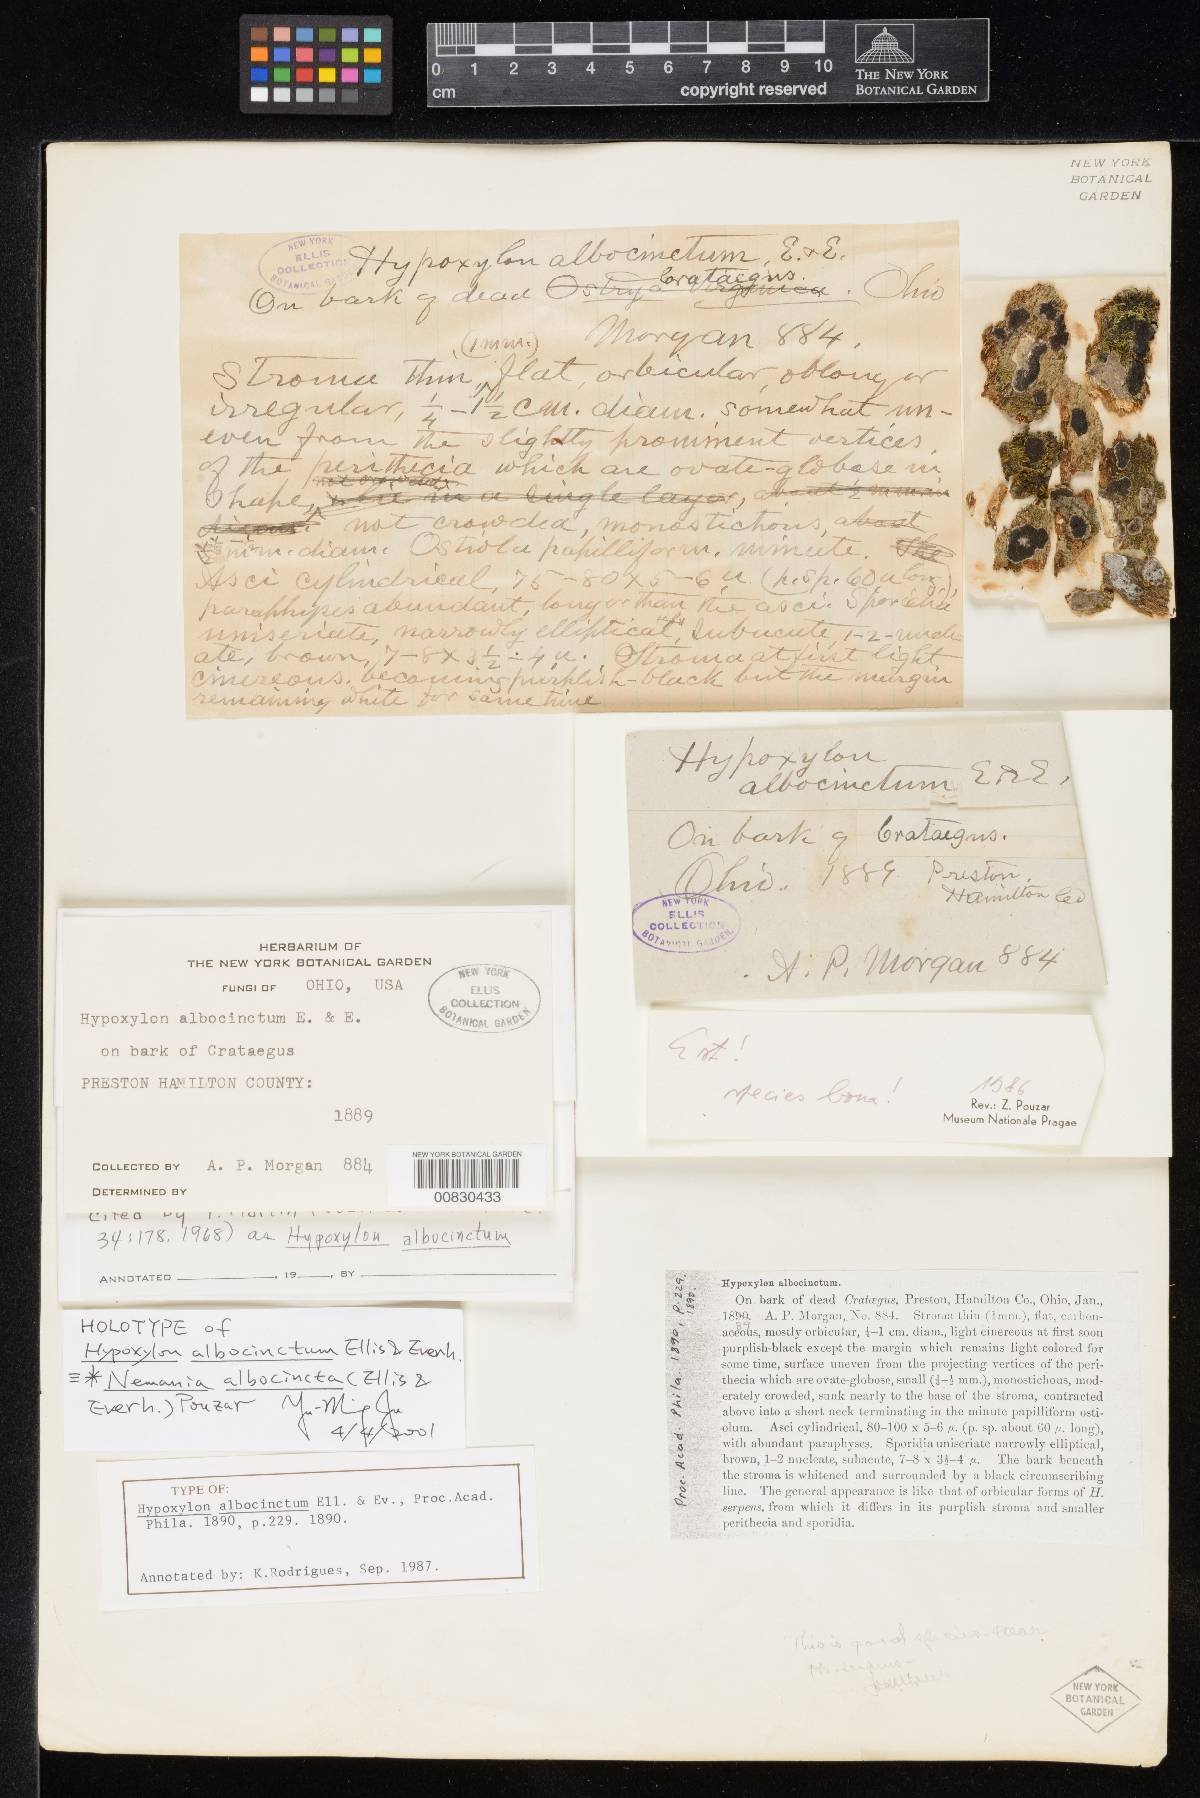 0 1 2 3 4 5 6 7 8 9 10
cm
copyright reserved
THE NEW YORK
BOTANICAL GARDEN
NEW YORK
BOTANICAL
GARDEN
NEW YORK
ELLIS
COLLECTION
BOTANICAL GARDEN
Hypoxylon albocinctum, E. & E.
On bark of dead Ostrya Virginica Crataegus. Ohio
Morgan 884.
Stroma thin, (1 mm.) flat, orbicular, oblong or
irregular, 1/4 - 1 1/2 cm. diam. somewhat un-
even from the slightly prominent vertices
of the perithecia which are ovate-globose in
shape, in a single layer,
not crowded, monostichous, about
mm. diam. Ostiola papilliform, minute. The
Asci cylindrical, 75-80 x 5-6 u. (p. sp. 60 u long),
paraphyses abundant, longer than the asci. Sporidia
uniseriate, narrowly elliptical, subacute, 1-2-nucle-
ate, brown, 7-8 x 3 1/2 - 4 u. Stroma at first light
cinereous, becoming purplish-black but the margin
remaining white for some time
Hypoxylon
albocinctum E & E.
On bark of Crataegus.
Ohio. 1889 Preston,
Hamilton Co
NEW YORK
ELLIS
COLLECTION
BOTANICAL GARDEN
A. P. Morgan 884
Est!
species bona!
1986
Rev.: Z. Pouzar
Museum Nationale Pragae
HERBARIUM OF
THE NEW YORK BOTANICAL GARDEN
FUNGI OF OHIO, USA
NEW YORK
ELLIS
COLLECTION
BOTANICAL GARDEN
Hypoxylon albocinctum E. & E.
on bark of Crataegus
PRESTON HAMILTON COUNTY:
1889
COLLECTED BY A. P. Morgan 884
DETERMINED BY
NEW YORK BOTANICAL GARDEN
00830433
Cited by
34:178. 1968) as Hypoxylon albocinctum
ANNOTATED , 19 , BY
HOLOTYPE of
Hypoxylon albocinctum Ellis & Everh.
≡ * Nemania albocincta (Ellis &
Everh.) Pouzar Yu-Ming Ju
4/4/2001
TYPE OF:
Hypoxylon albocinctum Ell. & Ev., Proc.Acad.
Phila. 1890, p.229. 1890.
Annotated by: K.Rodrigues, Sep. 1987.
Proc. Acad. Phila. 1890, p. 229.
1890.
Hypoxylon albocinctum.
On bark of dead Cratægus, Preston, Hamilton Co., Ohio, Jan.,
1890. A. P. Morgan, No. 884. Stroma thin (1mm.), flat, carbon-
89
aceous, mostly orbicular, ¼–1 cm. diam., light cinereous at first soon
purplish-black except the margin which remains light colored for
some time, surface uneven from the projecting vertices of the peri-
thecia which are ovate-globose, small (¼–⅓ mm.), monostichous, mod-
erately crowded, sunk nearly to the base of the stroma, contracted
above into a short neck terminating in the minute papilliform osti-
olum. Asci cylindrical, 80–100 x 5–6 µ. (p. sp. about 60 µ. long),
with abundant paraphyses. Sporidia uniseriate narrowly elliptical,
brown, 1–2 nucleate, subacute, 7–8 x 3½–4 µ. The bark beneath
the stroma is whitened and surrounded by a black circumscribing
line. The general appearance is like that of orbicular forms of H.
serpens, from which it differs in its purplish stroma and smaller
perithecia and sporidia.
This is good species near
H. serpens
NEW YORK
BOTANICAL
GARDEN